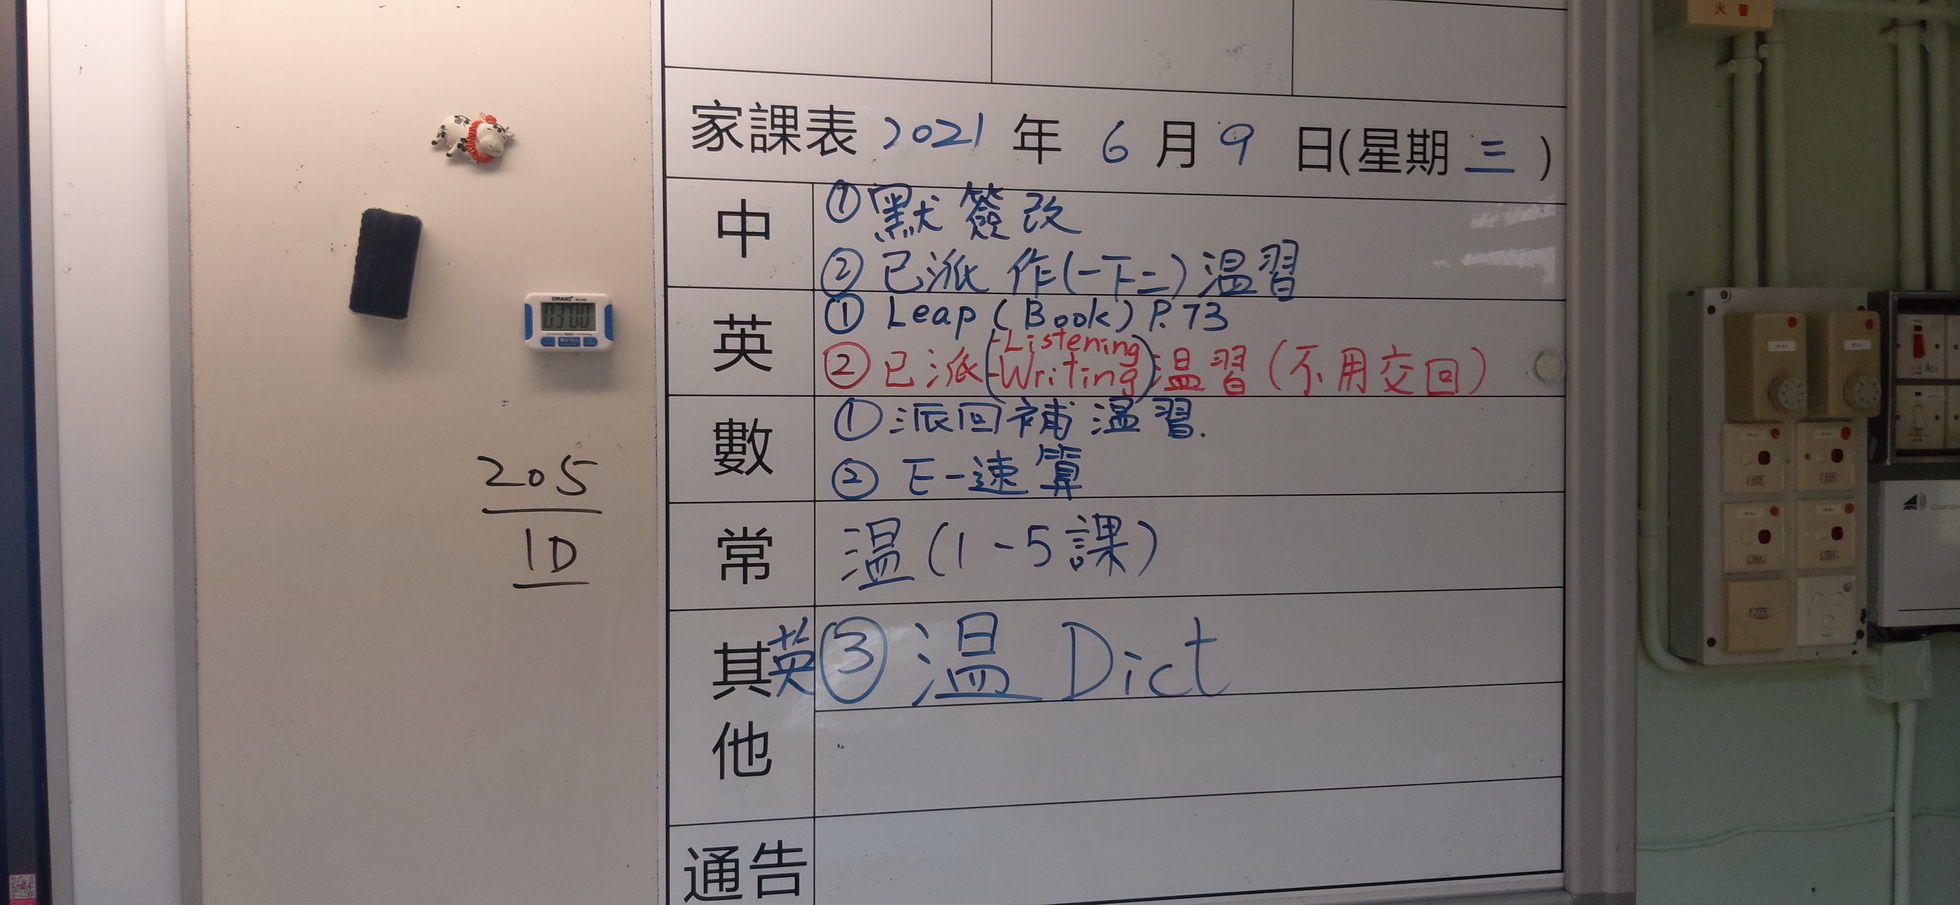 火警
家課表 2021 年 6 月 9 日(星期 三 )
中
①默簽改
②已派作(一下二)溫習
英
① Leap (Book) P.73
②已派(-Listening -Writing)溫習(不用交回)
數
①派回補溫習.
② E-速算
常
溫(1-5課)
其他
英③溫 Dict
通告
205
1D